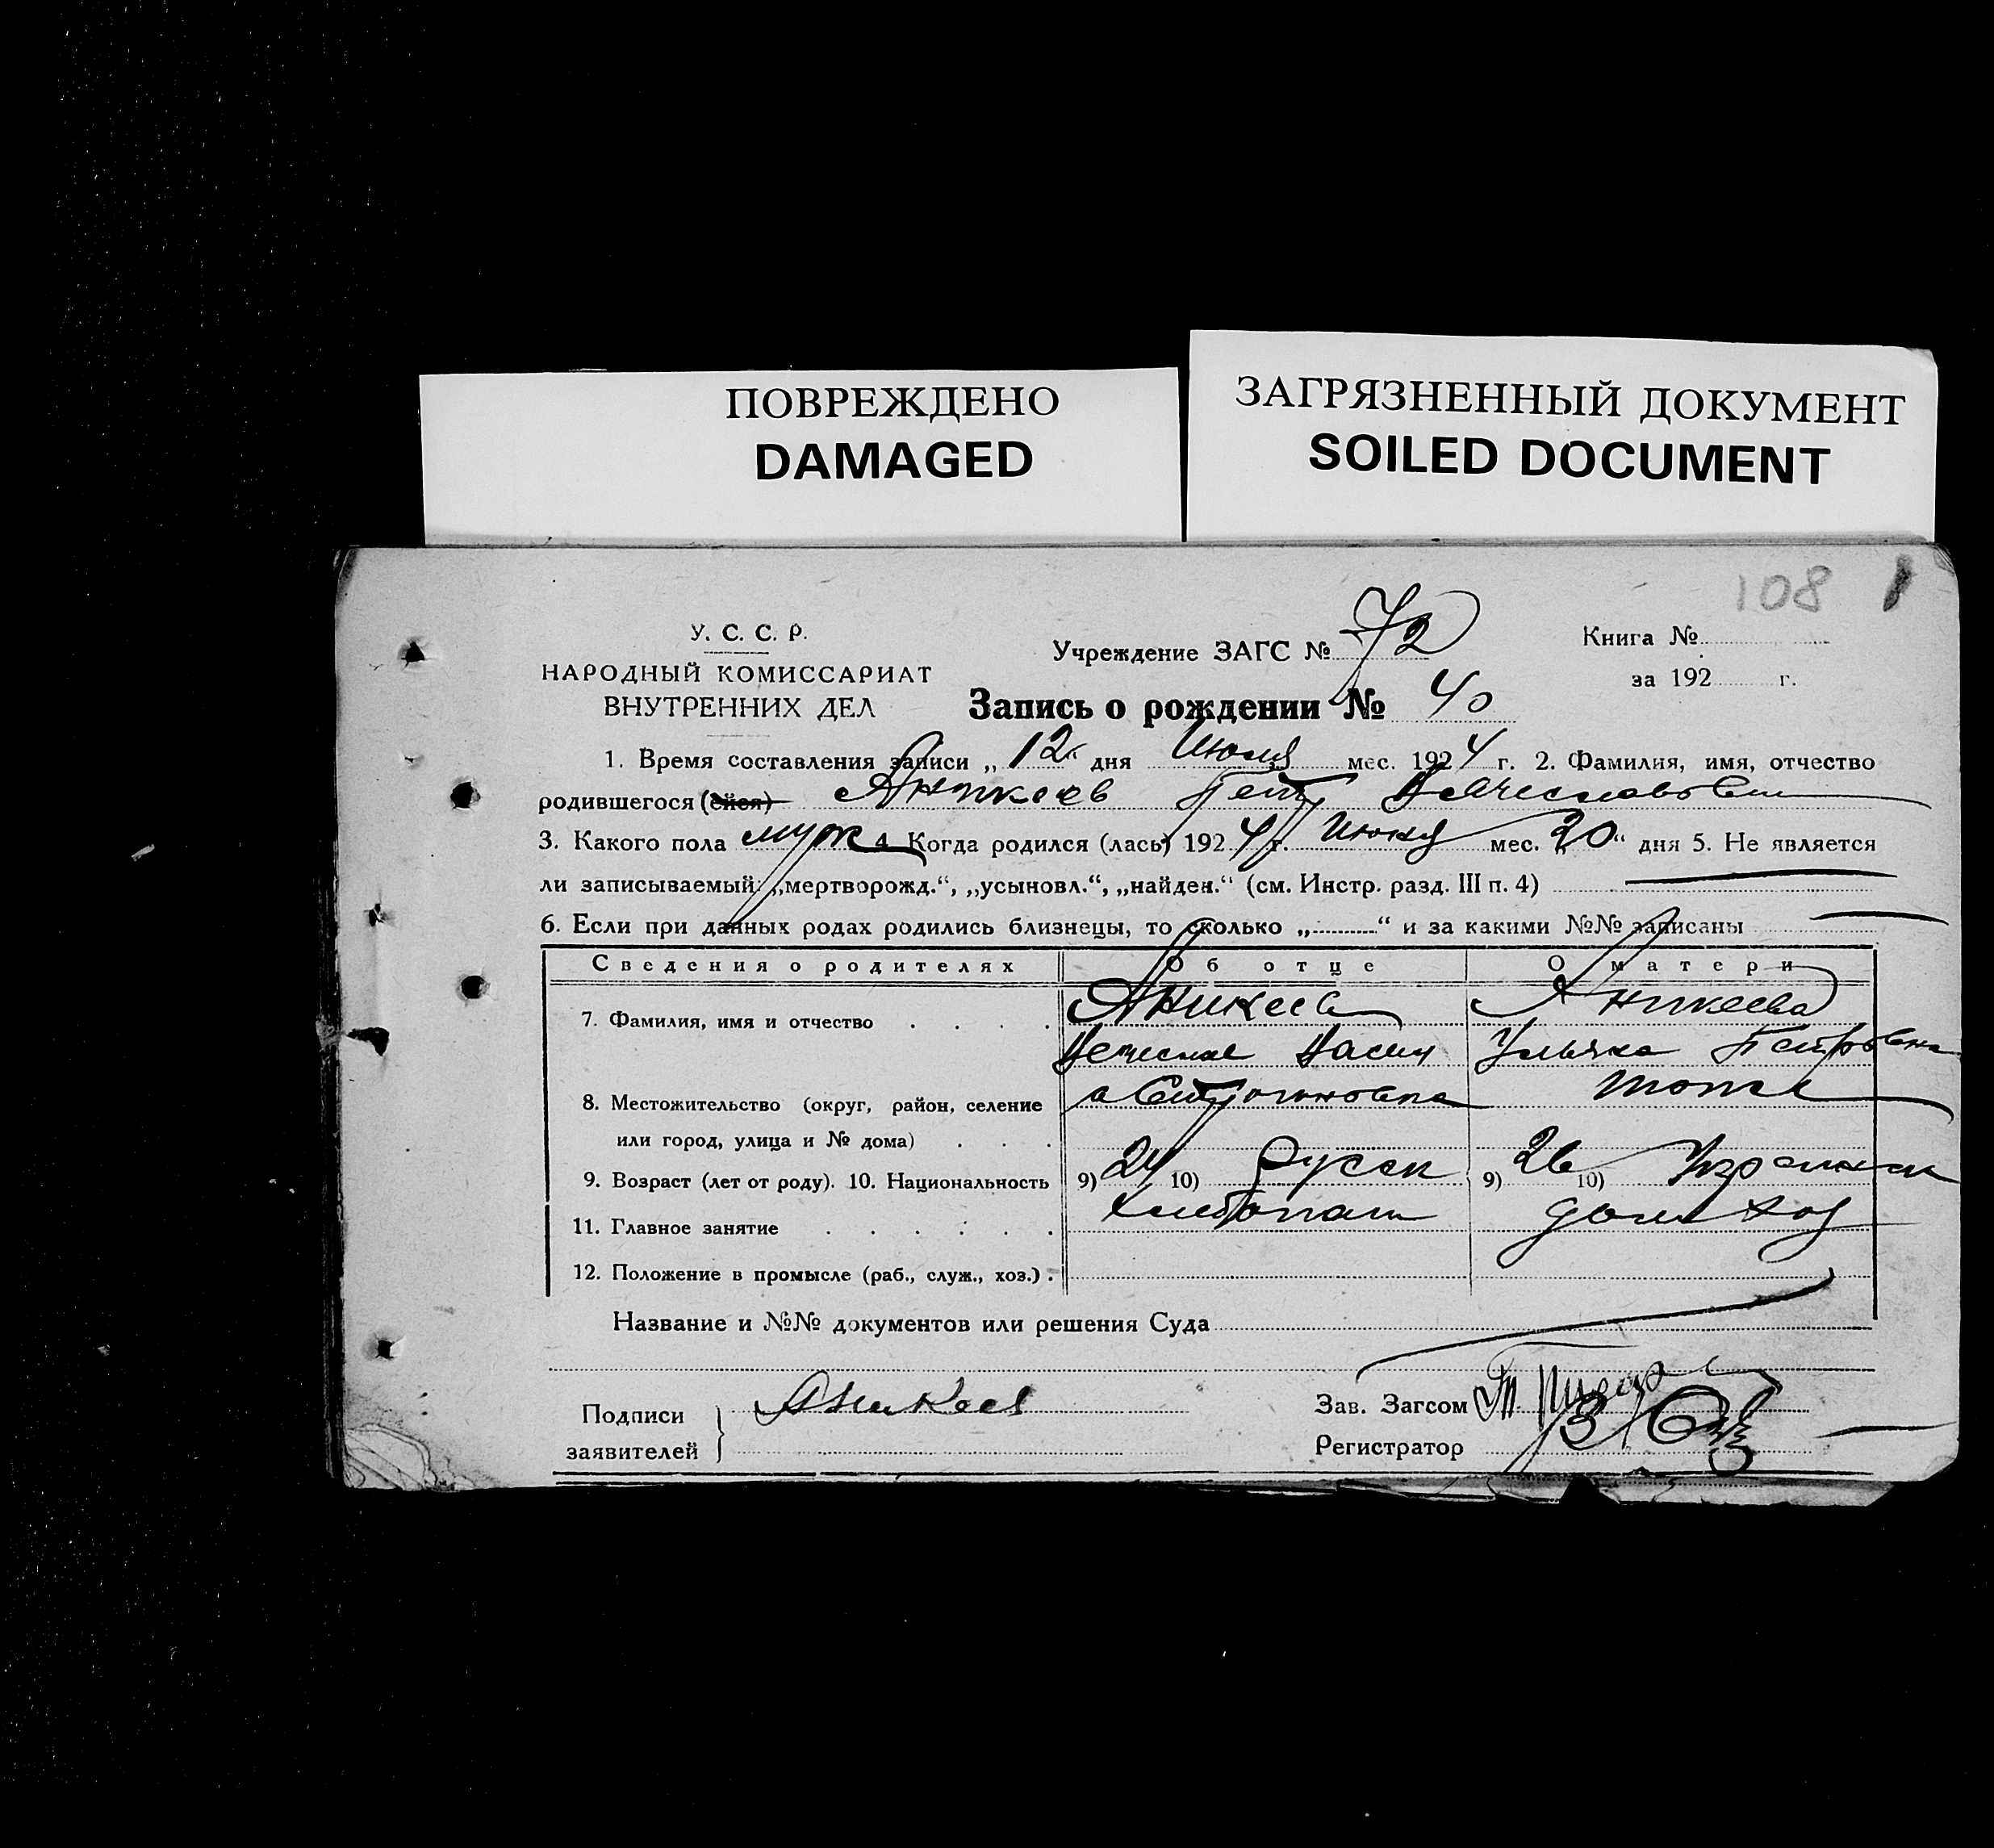 ПОВРЕЖДЕНО
DAMAGED
ЗАГРЯЗНЕННЫЙ ДОКУМЕНТ
SOILED DOCUMENT
108
У. С. С. Р.
НАРОДНЫЙ КОМИССАРИАТ
ВНУТРЕННИХ ДЕЛ
Учреждение ЗАГС № 72
Книга №
за 192 г.
Запись о рождении № 40
1. Время составления записи „12“ дня Июля мес. 1924 г. 2. Фамилия, имя, отчество
родившегося (ейся) Аникеев Петр Вячеславович
3. Какого пола муж 4. Когда родился (лась) 1924 г. Июня мес. „20“ дня 5. Не является
ли записываемый: „мертворожд.“, „усыновл.“, „найден.“ (см. Инстр. разд. III п. 4)
6. Если при данных родах родились близнецы, то сколько „ “ и за какими №№ записаны
Сведения о родителях Об отце О матери
7. Фамилия, имя и отчество Аникеев Аникеева
Ульяна Петровна
8. Местожительство (округ, район, селение тоже
или город, улица и № дома)
9. Возраст (лет от роду). 10. Национальность 9) 24 10) Русск 9) 26 10)
11. Главное занятие хлебопаш дом хоз
12. Положение в промысле (раб., служ., хоз.)
Название и №№ документов или решения Суда
Подписи Аникеев
заявителей
Зав. Загсом
Регистратор